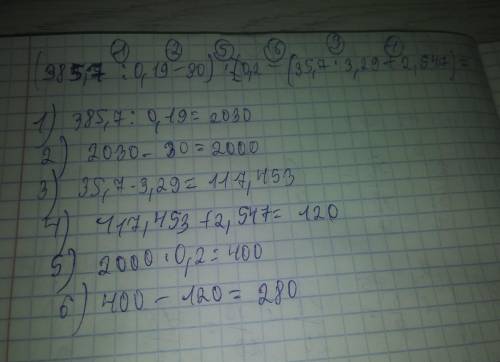 ① ② ⑤ ⑥ ③ ④
(385,7 : 0,19 - 30) · 0,2 - (35,7 · 3,29 + 2,547) =
1) 385,7 : 0,19 = 2030
2) 2030 - 30 = 2000
3) 35,7 · 3,29 = 117,453
4) 117,453 + 2,547 = 120
5) 2000 · 0,2 = 400
6) 400 - 120 = 280